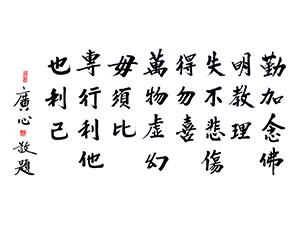 勤加念佛
明教理
失不悲傷
得勿喜
萬物虛幻
毋須比
專行利他
也利己
廣心敬題